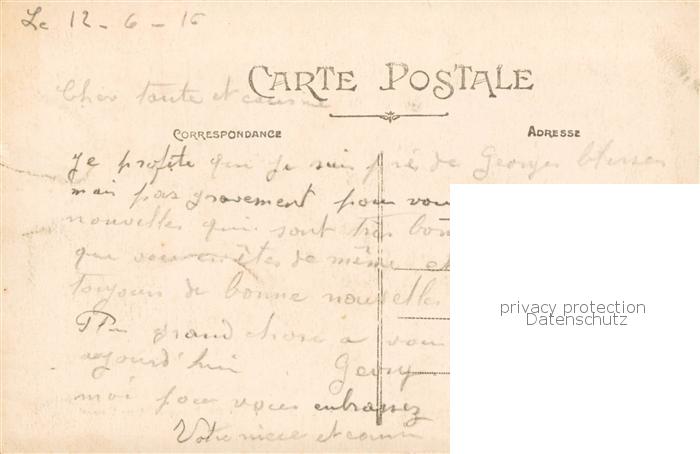 Le 12-6-16
CARTE POSTALE
Cher tante et cousine
CORRESPONDANCE
ADRESSE
Je profite que je suis près de Georges blesser
mais pas gravement pour vous
nouvelles qui sont très bonne
que vous êtes de même et
toujours de bonne nouvelles
grand chose a vous
aujourd'hui Georg
moi pour vous embrassez
Votre niece et cousin
privacy protection
Datenschutz